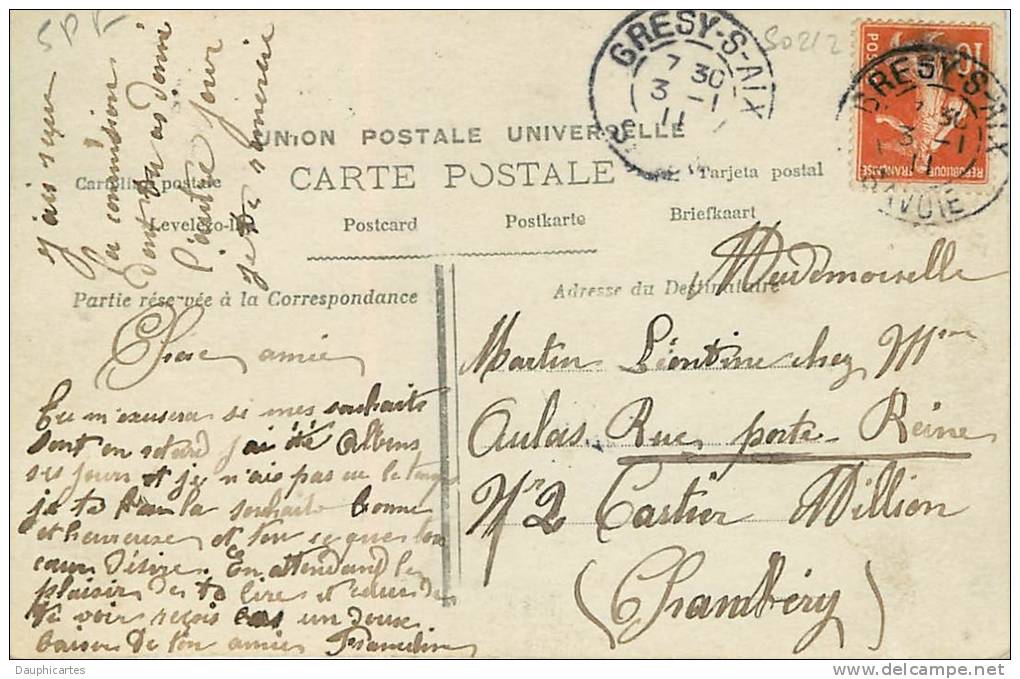 SPR
50212
j'ais reçu
ta commision
dont tu as donné
l'autre jour
je te remercie
GRESY-S-AIX
7 30
3 -1
11
10
POS
REPUBLIQUE FRANÇAISE
GRESY-S-AIX
7 30
3 -1
11
SAVOIE
UNION POSTALE UNIVERSELLE
CARTE POSTALE
postale Tarjeta postal
Postcard Postkarte Briefkaart
Partie réservée à la Correspondance
Adresse du Destinataire
Mademoiselle
Martin Léontine chez Mme
Rue porte Reine
N° 2 Cartier Million
(Chambéry)
Chere amie
Tu m'exusera si mes souhaits
sont en retard j'ai été Albens
ses jours et je n'ais pas eu le temps
je te la souhaite bonne
et heureuse et ton ce que ton
cœur Désire. En attendant le
plaisir de te lires et celui de
te voir reçois un doux
baiser de ton amie Franceline
Dauphicartes
www.delcampe.net